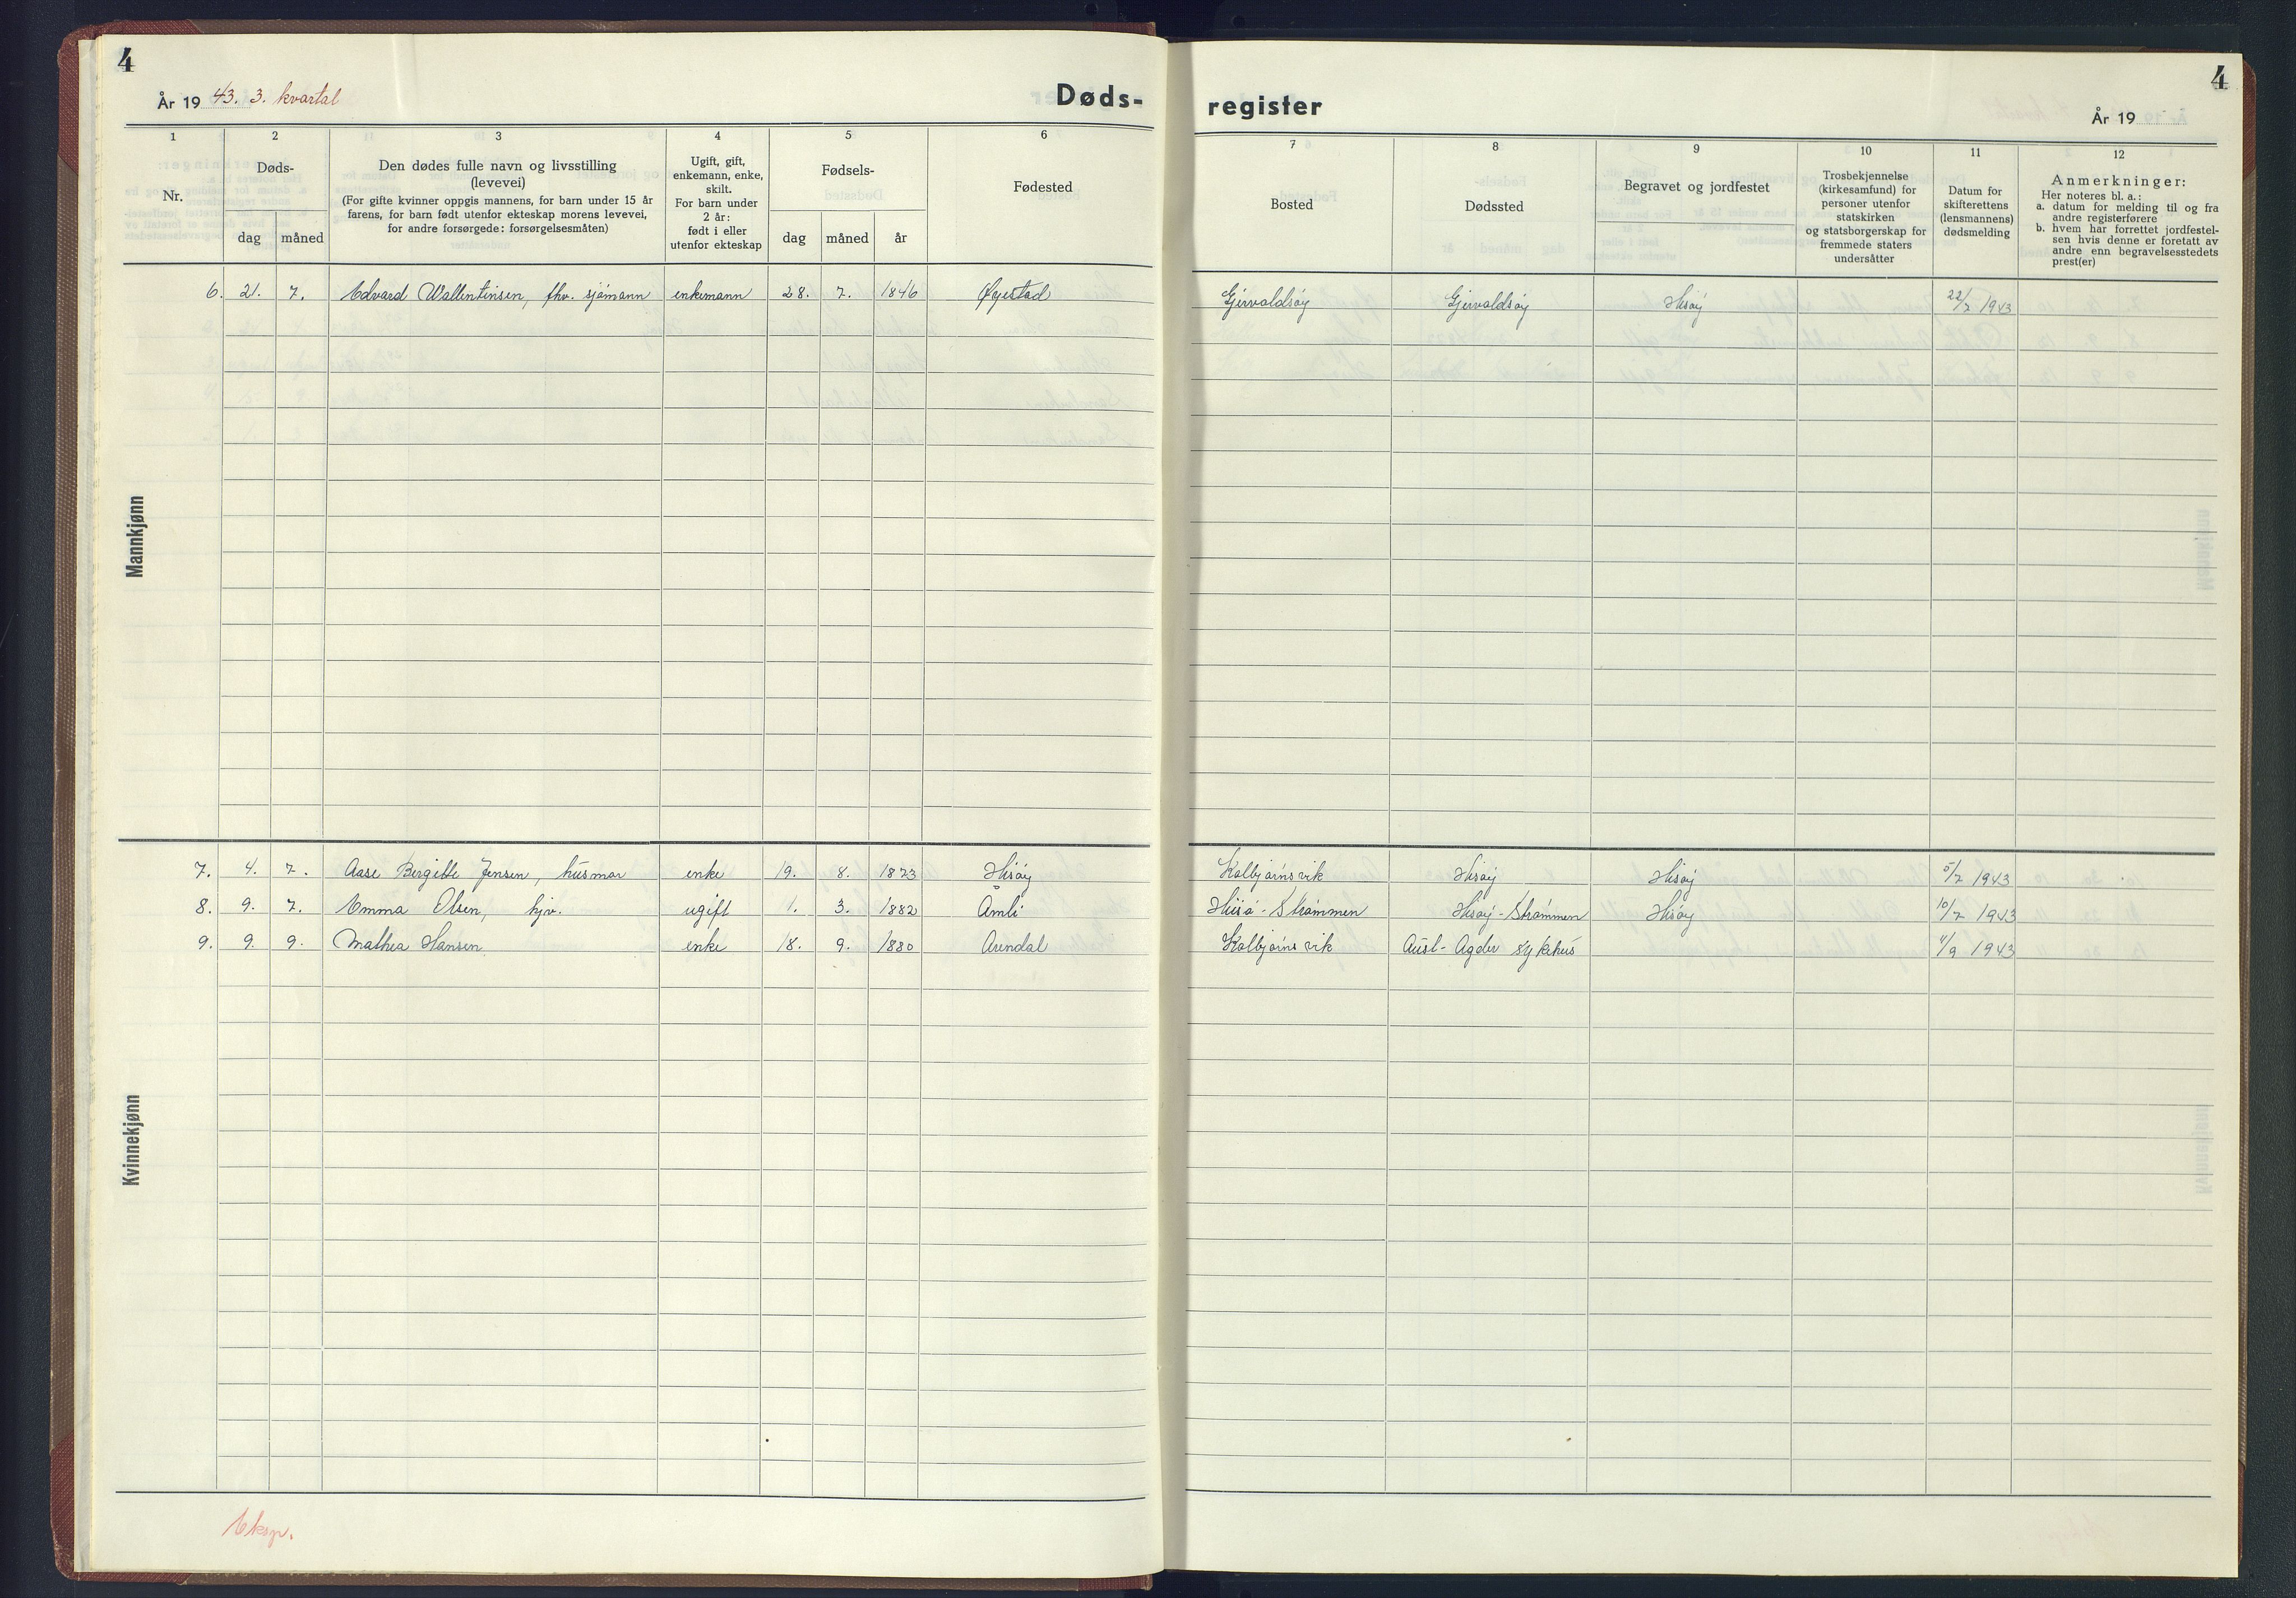 4
År 19 43. 3. kvartal
Døds-
1 2 3 4 5 6
Nr.
Døds-
dag måned
Den dødes fulle navn og livsstilling
(levevei)
(For gifte kvinner oppgis mannens, for barn under 15 år
farens, for barn født utenfor ekteskap morens levevei,
for andre forsørgede: forsørgelsesmåten)
Ugift, gift,
enkemann, enke,
skilt.
For barn under
2 år:
født i eller
utenfor ekteskap
Fødsels-
dag måned år
Fødested
Mannkjønn
6. 21. 7. Edvard Wallentinsen, fhv. sjömann enkemann 28. 7. 1846 Øyestad
Kvinnekjønn
7. 4. 7. Aase Bergitte Jensen, husmor enke 19. 8. 1873 Hisöy
8. 9. 7. Emma Olsen, hjv. ugift 1. 3. 1882 Åmli
9. 9. 9. Mathea Hansen enke 18. 9. 1880 Arendal
Eksp.
4
register
År 19
7 8 9 10 11 12
Bosted
Dødssted
Begravet og jordfestet
Trosbekjennelse
(kirkesamfund) for
personer utenfor
statskirken
og statsborgerskap for
fremmede staters
undersåtter
Datum for
skifterettens
(lensmannens)
dødsmelding
Anmerkninger:
Her noteres bl. a.:
a. datum for melding til og fra
andre registerførere
b. hvem har forrettet jordfestel-
sen hvis denne er foretatt av
andre enn begravelsesstedets
prest(er)
Gjervoldsöy Gjervoldsöy Hisöy 22/7 1943
Kolbjörnsvik Hisöy Hisöy 5/7 1943
Hisö-Strömmen Hisöy-Strömmen Hisöy 10/7 1943
Kolbjörnsvik Aust-Agder sykehus 11/9 1943